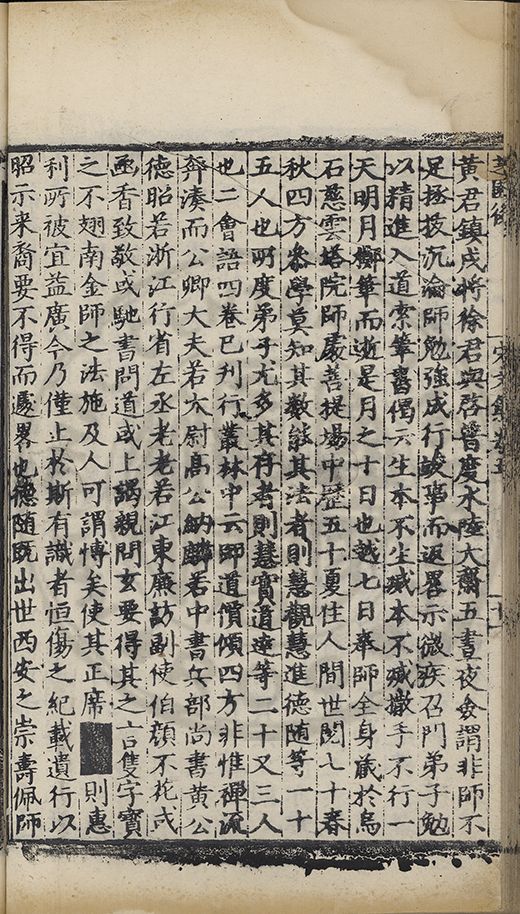 芝園後　宋文錄卷五　十一
黃君鎮戍將徐君與啓普度水陸大齋五晝夜僉謂非師不
足拯拔沉淪師勉強成行竣事而返畧示微疾召門弟子勉
以精進入道索筆書偈云生本不生滅本不滅撒手不行一
天明月擲筆而逝是月之十日也越七日奉師全身瘞於烏
石慈雲塔院師處菩提場中歷五十夏住人間世閱七十春
秋四方叅學莫知其數能其法者則慧觀慧進德随等一十
五人也所度弟子尤多其存者則慧實道達等二十又三人
也二會語四卷已刊行叢林中云師道價傾四方非惟禪流
奔湊而公卿大夫若太尉高公納麟若中書兵部尚書黃公
德昭若浙江行省左丞老老若江東廉訪副使伯顔不花或
函香致敬或馳書問道或上謁親問玄要得其之言隻字寶
之不翅南金師之法施及人可謂慱矣使其正席則惠
利所被宜益廣今乃僅止於斯有識者恒傷之紀載遺行以
昭示来裔要不得而畧也德随既出世西安之崇壽佩師